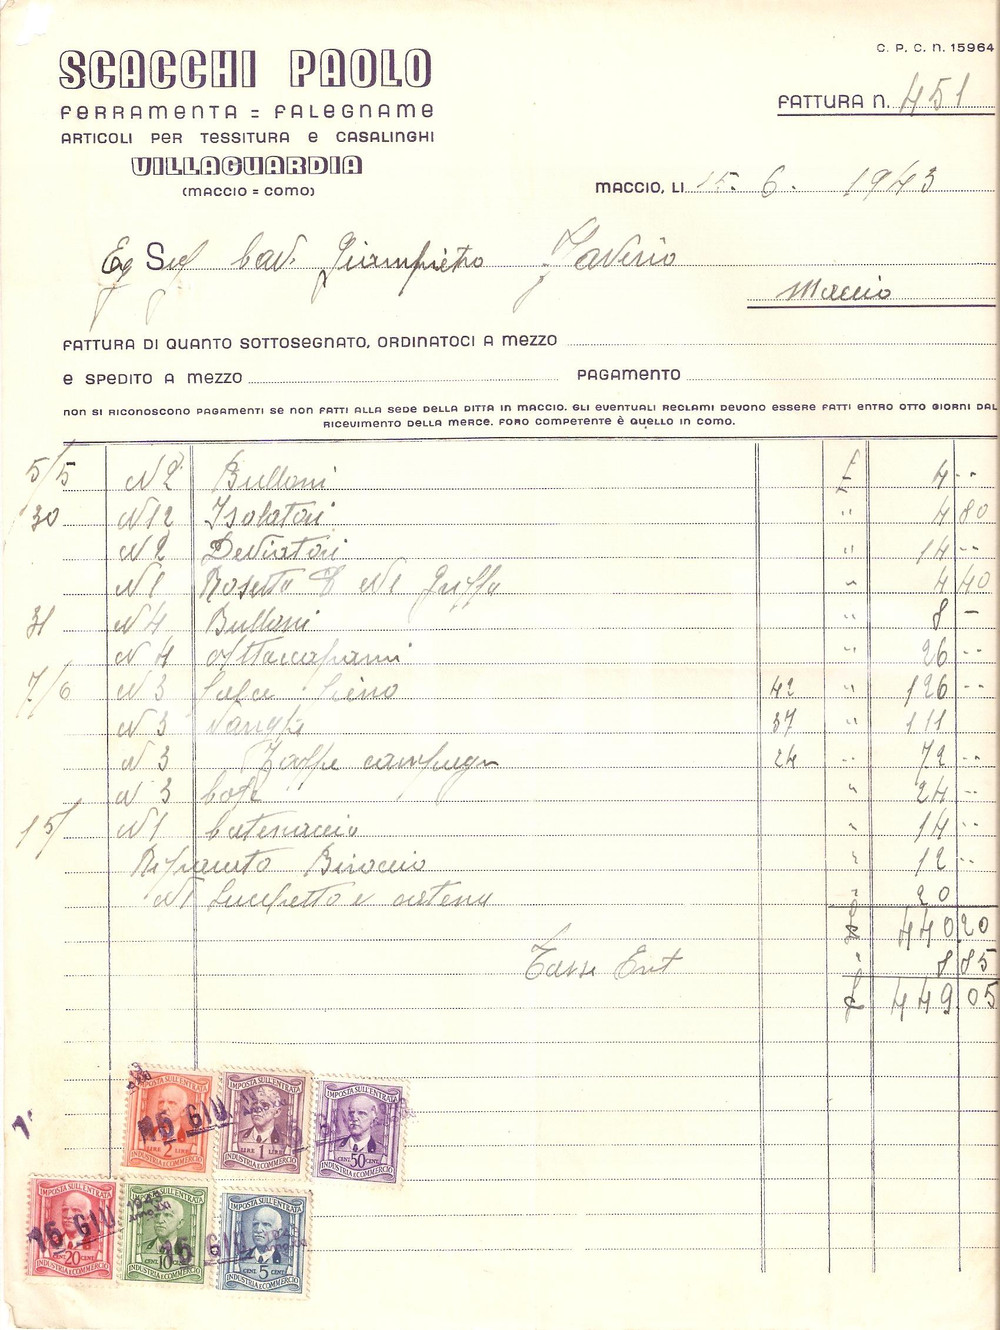 SCACCHI PAOLO
C. P. C. N. 15964
FERRAMENTA = FALEGNAME
FATTURA N. 451
ARTICOLI PER TESSITURA E CASALINGHI
VILLAGUARDIA
(MACCIO = COMO)
MACCIO, LI 15. 6. 1943
Eg Sig Cav. Giampietro Saverio
Maccio
FATTURA DI QUANTO SOTTOSEGNATO, ORDINATOCI A MEZZO
E SPEDITO A MEZZO PAGAMENTO
NON SI RICONOSCONO PAGAMENTI SE NON FATTI ALLA SEDE DELLA DITTA IN MACCIO. GLI EVENTUALI RECLAMI DEVONO ESSERE FATTI ENTRO OTTO GIORNI DAL
RICEVIMENTO DELLA MERCE. FORO COMPETENTE È QUELLO IN COMO.
5/5 N 2 Bulloni £ 4 --
30 N 12 Isolatori " 4 80
N 2 Deviatori " 14 --
N 1 Rosetta E N 1 Griffa " 4 40
31 N 4 Bulloni " 8 -
N 4 Attaccapanni " 26 --
7/6 N 3 Falce Fieno 42 " 126 --
N 3 Vanghe 37 " 111
N 3 Zappe campagn 24 " 72 --
N 3 " 24 --
15/ N 1 Catenaccio " 14 --
Riparato Biroccio " 12 --
N 1 Lucchetto e catena " 20
440 20
Tassa Ent " 8 85
£ 449 05
IMPOSTA SULL'ENTRATA
LIRE 2 LIRE
INDUSTRIA E COMMERCIO
IMPOSTA SULL'ENTRATA
LIRE 1 LIRE
INDUSTRIA E COMMERCIO
IMPOSTA SULL'ENTRATA
CENT. 50 CENT.
INDUSTRIA E COMMERCIO
15 GIU.
IMPOSTA SULL'ENTRATA
CENT. 20 CENT.
INDUSTRIA E COMMERCIO
IMPOSTA SULL'ENTRATA
CENT. 10 CENT.
INDUSTRIA E COMMERCIO
IMPOSTA SULL'ENTRATA
CENT. 5 CENT.
INDUSTRIA E COMMERCIO
15 GIU
1943
ANNO XXI
15 GIU